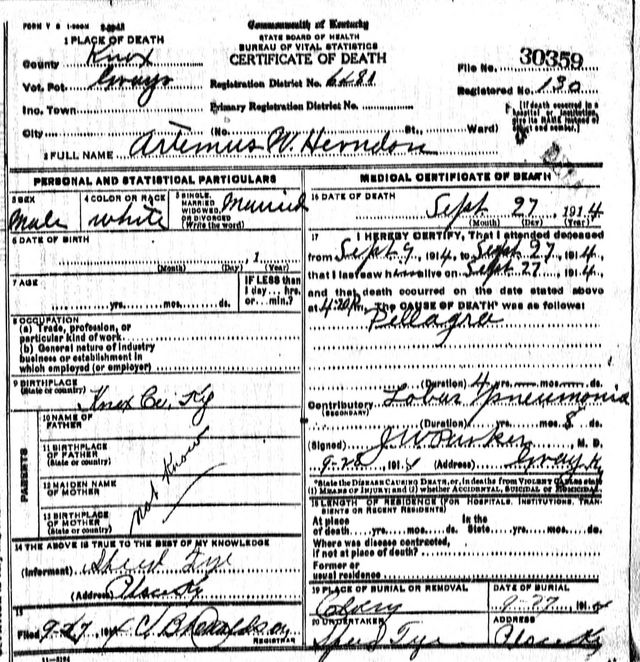 FORM V S 1-
Commonwealth of Kentucky
STATE BOARD OF HEALTH
BUREAU OF VITAL STATISTICS
CERTIFICATE OF DEATH
1 PLACE OF DEATH
County Knox
Vot. Pct. Grays
Inc. Town
City
Registration District No. 6481
Primary Registration District No.
(No. St., Ward)
File No. 30359
Registered No. 130
[If death occurred in a
hospital or institution,
give its NAME instead of
street and number.]
2 FULL NAME Artemus W. Herndon
PERSONAL AND STATISTICAL PARTICULARS
3 SEX
Male
4 COLOR OR RACE
White
5 SINGLE,
MARRIED
WIDOWED,
OR DIVORCED
(Write the word)
Married
6 DATE OF BIRTH
, 1
(Month) (Day) (Year)
7 AGE
yrs. mos. ds.
IF LESS than
1 day... hrs.
or... min.?
8 OCCUPATION
(a) Trade, profession, or
particular kind of work
(b) General nature of industry
business or establishment in
which employed (or employer)
9 BIRTHPLACE
(State or country) Knox Co. Ky
PARENTS
10 NAME OF
FATHER
11 BIRTHPLACE
OF FATHER
(State or country)
12 MAIDEN NAME
OF MOTHER
13 BIRTHPLACE
OF MOTHER
(State or country)
not Know
14 THE ABOVE IS TRUE TO THE BEST OF MY KNOWLEDGE
(Informant) Tye
(Address)
15
Filed 9-27, 1914
REGISTRAR
11-3194
MEDICAL CERTIFICATE OF DEATH
16 DATE OF DEATH
Sept 27, 1914
(Month) (Day) (Year)
17 I HEREBY CERTIFY, That I attended deceased
from Sept 9, 1914, to Sept 27, 1914,
that I last saw h alive on Sept 27, 1914,
and that death occurred on the date stated above
at 4:20 P.m. The CAUSE OF DEATH was as follows:
Pellagra
(Duration) 4 yrs. mos. ds.
Contributory Lobar Pneumonia
(SECONDARY)
(Duration) yrs. mos. 8 ds.
(Signed) J W Parker, M. D.
9-28, 1914 (Address) Gray Ky
*State the DISEASE CAUSING DEATH, or, in deaths from VIOLENT CAUSES state
(1) MEANS OF INJURY; and (2) whether ACCIDENTAL, SUICIDAL or HOMICIDAL
18 LENGTH OF RESIDENCE (FOR HOSPITALS, INSTITUTIONS, TRANSIENTS OR RECENT RESIDENTS)
At place In the
of death yrs. mos. ds. State yrs. mos. ds.
Where was disease contracted,
if not at place of death?
Former or
usual residence
19 PLACE OF BURIAL OR REMOVAL
DATE OF BURIAL
9-27, 1914
20 UNDERTAKER
Speed Tye
ADDRESS